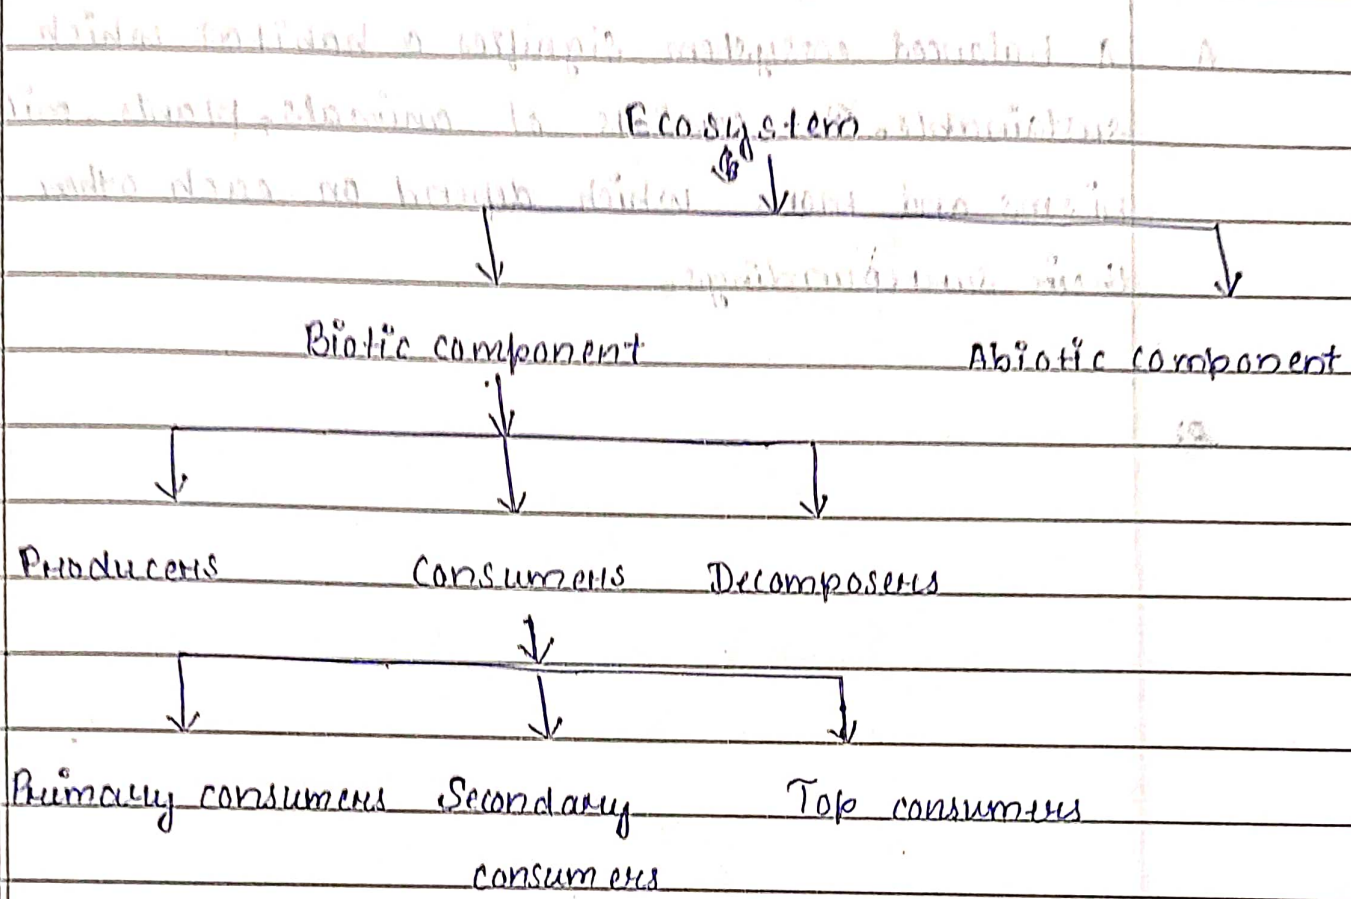 Ecosystem
Biotic component Abiotic component
Producers Consumers Decomposers
Primary consumers Secondary Top consumers
consumers